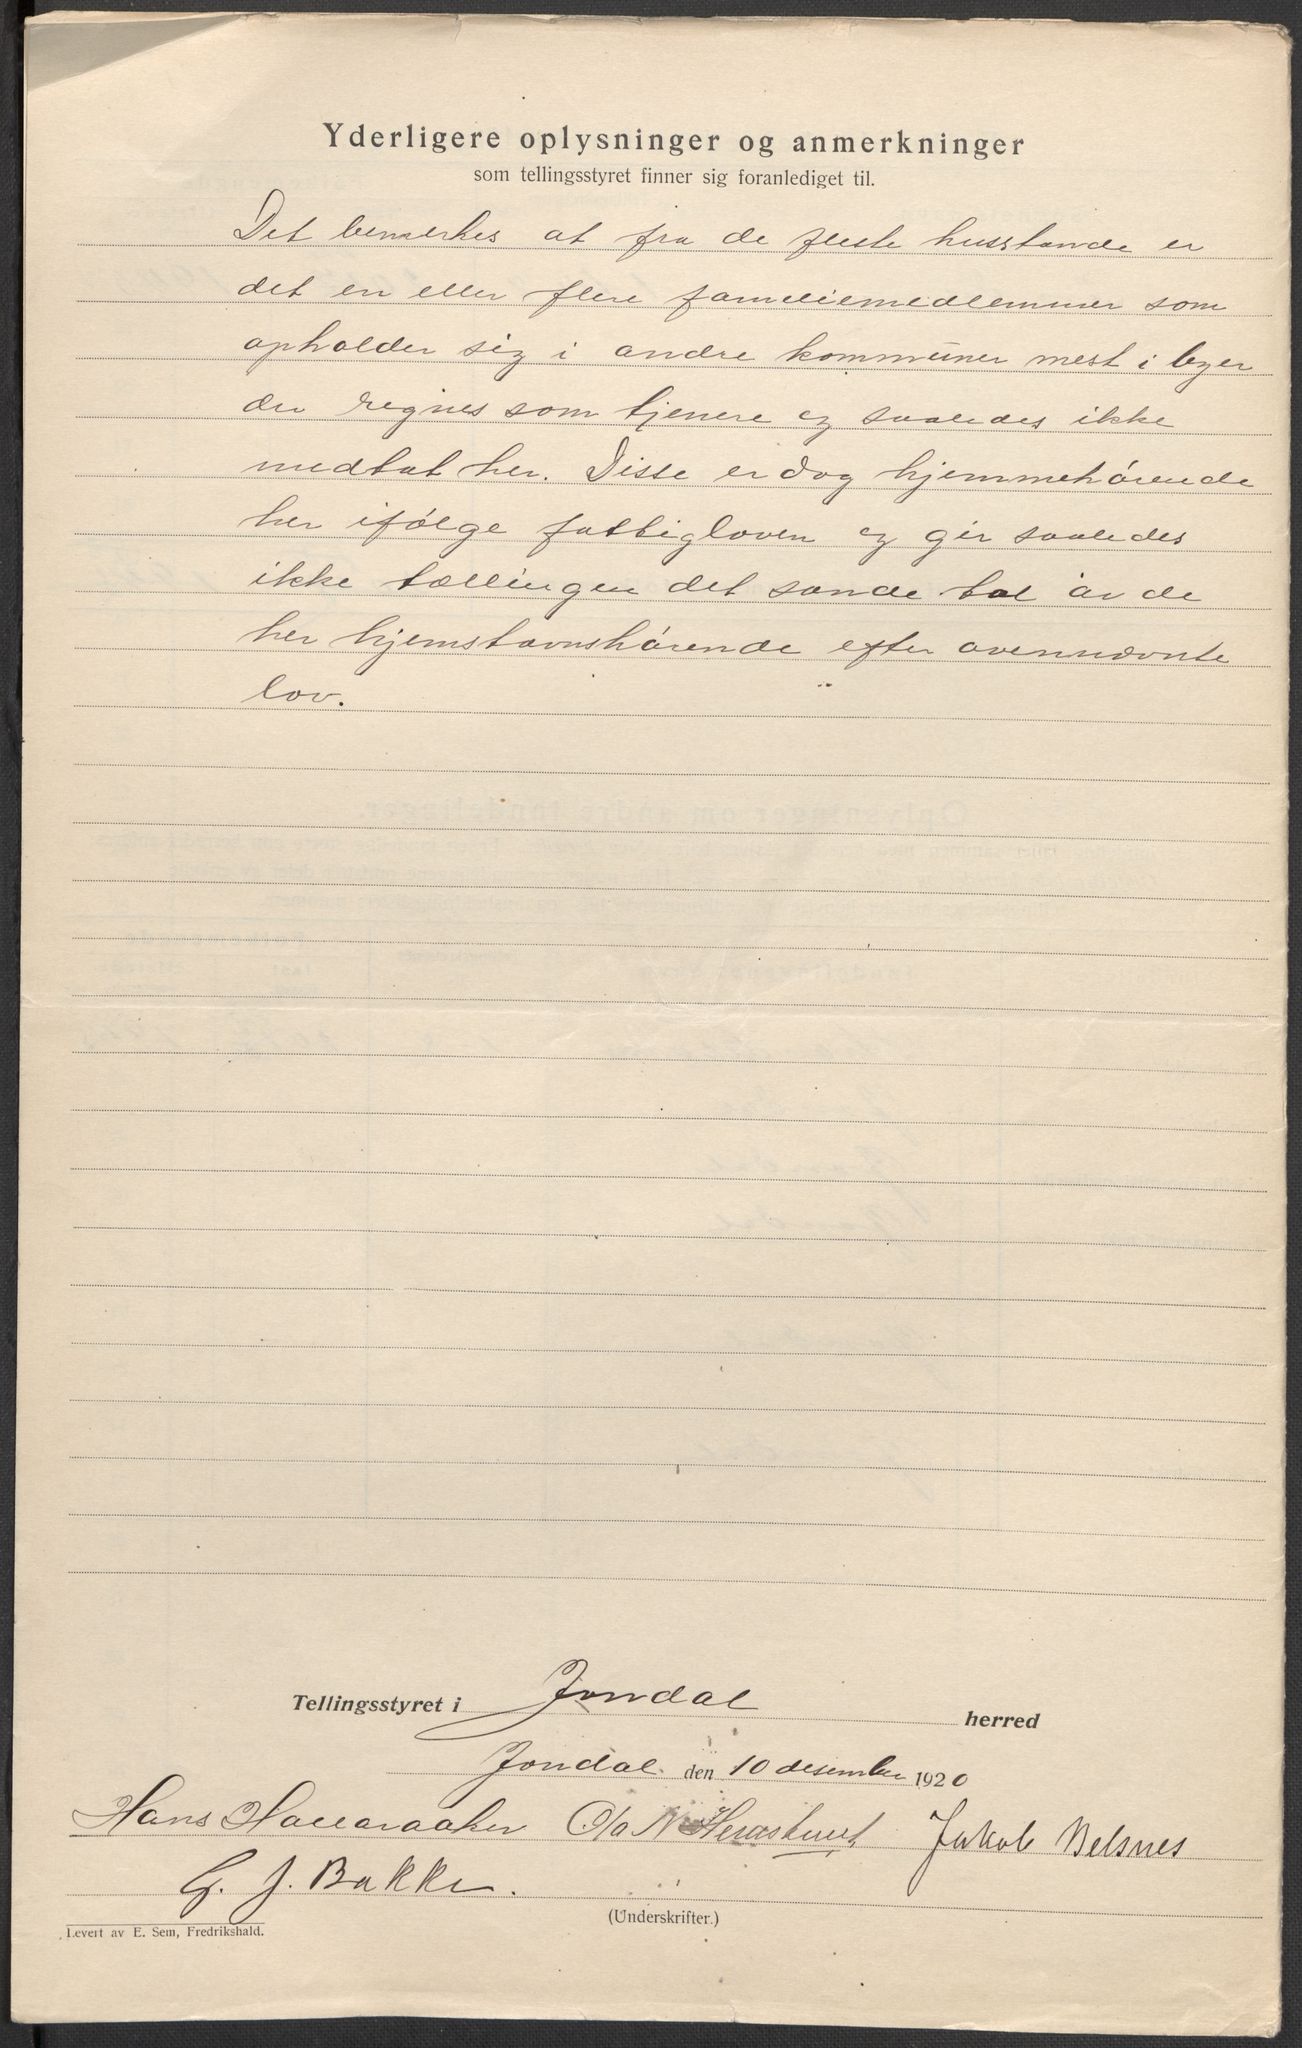 Yderligere oplysninger og anmerkninger
som tellingsstyret finner sig foranlediget til.
Det bemerkes at fra de fleste husstande er
det en eller flere familiemedlemmer som
opholder sig i andre kommuner mest i byer
der regnes som tjenere og saaledes ikke
medtat her. Disse er dog hjemmehørende
her ifølge fattigloven og gir saaledes
ikke tællingen det sande tal av de
her hjemstavnshørende efter ovennævnte
lov.
Tellingsstyret i Jondal herred
Jondal den 10 desember 1920
Hans Haueraaker O/a N Jakob Belsnes
G. J. Bakke.
(Underskrifter.)
Levert av E. Sem, Fredrikshald.